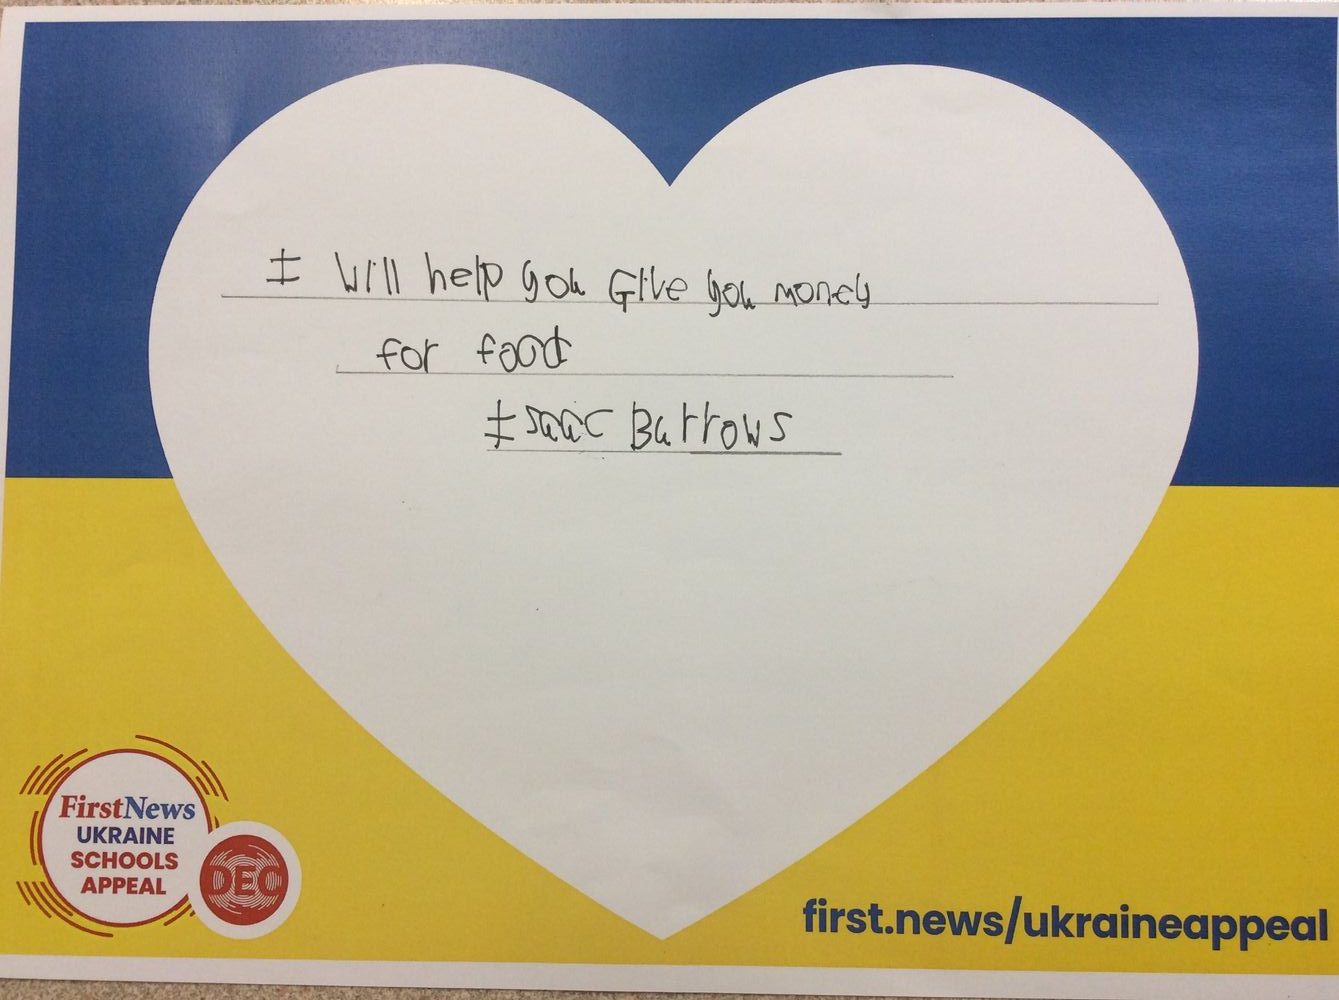 I will help you Give you money
for food
Isaac Burrows
FirstNews
UKRAINE
SCHOOLS
APPEAL
DEC
first.news/ukraineappeal